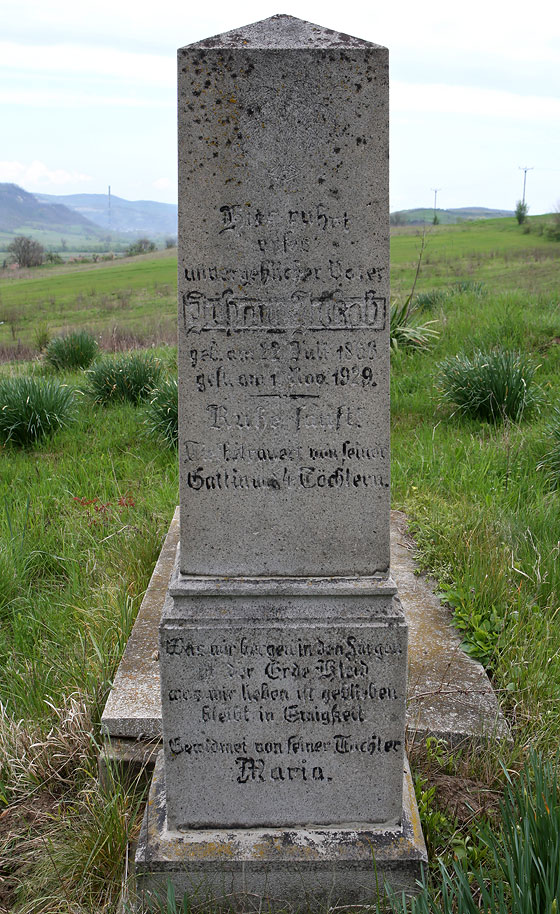 Hier ruhrt
unser
unvergeßlicher Vater
Johann
geb. am 22 Juli 18
gest. am 1 Nov. 1929.
Ruhe sanft.
betrauert von seiner
Gattin und 4 Töchtern.
Was wir bergen in den Särgen
ist der Erde Kleid
was wir lieben ist geblieben
bleibt in Ewigkeit
Gewidmet von seiner Tochter
Maria.